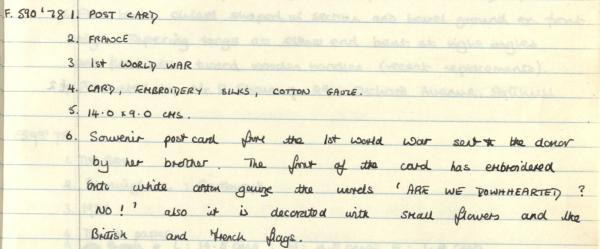 F. 590 '78 1. POST CARD
2. FRANCE
3 1st WORLD WAR
4. CARD, EMBROIDERY SILKS, COTTON GAUZE.
5. 14.0 x 9.0 CMS.
6. Souvenir post card from the 1st world war sent to the donor
by her brother. The front of the card has embroidered
onto white cotton gauze the words 'ARE WE DOWNHEARTED?
NO!' also it is decorated with small flowers and the
British and French flags.